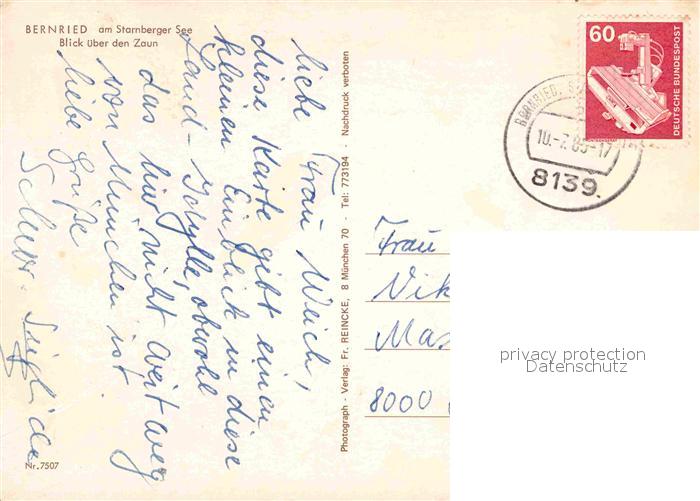 BERNRIED am Starnberger See
Blick über den Zaun
liebe Frau Weich,
diese Karte gibt einen
kleinen Einblick in diese
Land-Idylle, obwohl
das hier nicht weit weg
von München ist.
liebe Grüße
Schw.
Nr. 7507
Photograph - Verlag: Fr. REINCKE, 8 München 70 - Tel: 773194 - Nachdruck verboten
60
DEUTSCHE BUNDESPOST
BERNRIED, S
8139
Frau
Vik
Mas
8000
privacy protection
Datenschutz